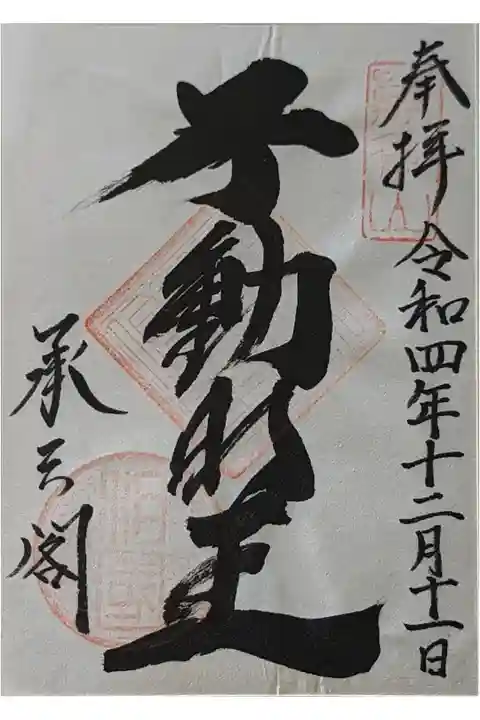 奉拝 令和四年十二月十一日
不動明王
承云閣